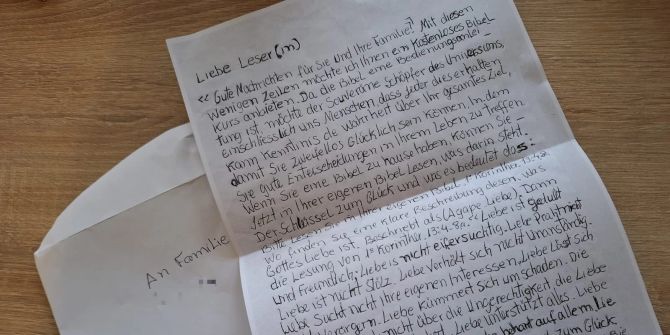 Liebe Leser(in)
"Gute Nachrichten für Sie und Ihre Familie! Mit diesen
wenigen Zeilen möchte ich Ihnen ein kostenloses Bibel-
kurs anbieten. Da die Bibel eine Bedienungsanlei-
tung ist, möchte der Souveräne Schöpfer des Universums,
einschliesslich uns Menschen dass jeder dies erhalten
kann Kenntnis die Wahrheit über Ihr gesamtes Ziel,
damit Sie zweifellos Glücklich sein können. In dem
Sie gute Entscheidungen in Ihrem Leben zu treffen
Wenn Sie eine Bibel zu hause haben können Sie
Jetzt in Ihrer eigenen Bibel Lesen, was darin steht.
Der Schlüssel zum Glück und was es bedeutet das:
Bitte Lesen Sie in Ihrer eigenen Bibel 1. Korinther 13:4,8a
Wo finden Sie eine klare Beschreibung dieses, was
Gottes Liebe ist. Beschreibt als (Agape Liebe). Dann
die Lesung von 1. Korinther 13:4-8a. Liebe ist geduld
und freundlich; Liebe is nicht eifersüchtig. Liebe Prahlt nicht
Liebe ist nicht stolz. Liebe verhält sich nicht Unanständig.
Liebe Sucht nicht ihre eigenen Interessen, Liebe lässt sich
Verärgern. Liebe kümmert sich um schaden. Die
nicht über die Ungerechtigkeit die Liebe
Liebe Unterstützt alles. Liebe
auf allem. Lie
Glück
An Familie